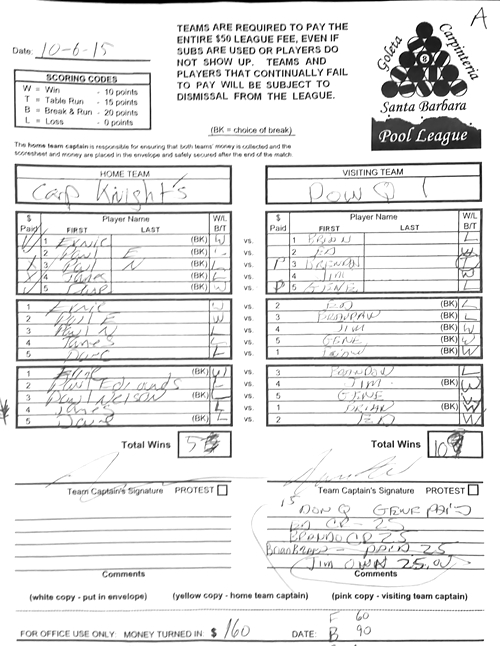 A
Date: 10-6-15
TEAMS ARE REQUIRED TO PAY THE
ENTIRE $50 LEAGUE FEE, EVEN IF
SUBS ARE USED OR PLAYERS DO
NOT SHOW UP. TEAMS AND
PLAYERS THAT CONTINUALLY FAIL
TO PAY WILL BE SUBJECT TO
DISMISSAL FROM THE LEAGUE.
(BK = choice of break)
SCORING CODES
W = Win - 10 points
T = Table Run - 15 points
B = Break & Run - 20 points
L = Loss - 0 points
Goleta Carpinteria
8
Santa Barbara
Pool League
The home team captain is responsible for ensuring that both teams' money is collected and the
scoresheet and money are placed in the envelope and safely secured after the end of the match.
HOME TEAM VISITING TEAM
Carp Knight's Don Q 1
$ Paid Player Name FIRST LAST W/L B/T $ Paid Player Name FIRST LAST W/L B/T
1 Ernie (BK) W vs. 1 BRIAN L
2 Paul E (BK) L vs. 2 ED W
3 Paul N (BK) vs. 3 BRENDAN
4 James (BK) L vs. 4 JIM W
5 Dave (BK) W vs. 5 GENE L
1 Ernie W vs. 2 ED (BK) L
2 Paul E W vs. 3 BRANDAN (BK) L
3 Paul N L vs. 4 JIM (BK) W
4 James L vs. 5 GENE (BK) W
5 Dave L vs. 1 BRIAN (BK) W
1 Ernie (BK) W vs. 3 BRANDAN L
2 Paul Edmonds (BK) L vs. 4 JIM W
3 Paul Nelson (BK) L vs. 5 GENE W
4 James L vs. 1 BRIAN (BK) W
5 Dave L vs. 2 ED W
Total Wins 5 Total Wins 10
Team Captain's Signature PROTEST Team Captain's Signature PROTEST
15 DON Q GENE PAID
ED CP - 25
BRANDO CP 25
Brian - PAID 25
JIM OWN 25.00
Comments Comments
(white copy - put in envelope) (yellow copy - home team captain) (pink copy - visiting team captain)
F 60
FOR OFFICE USE ONLY: MONEY TURNED IN: $ 160 DATE: B 90